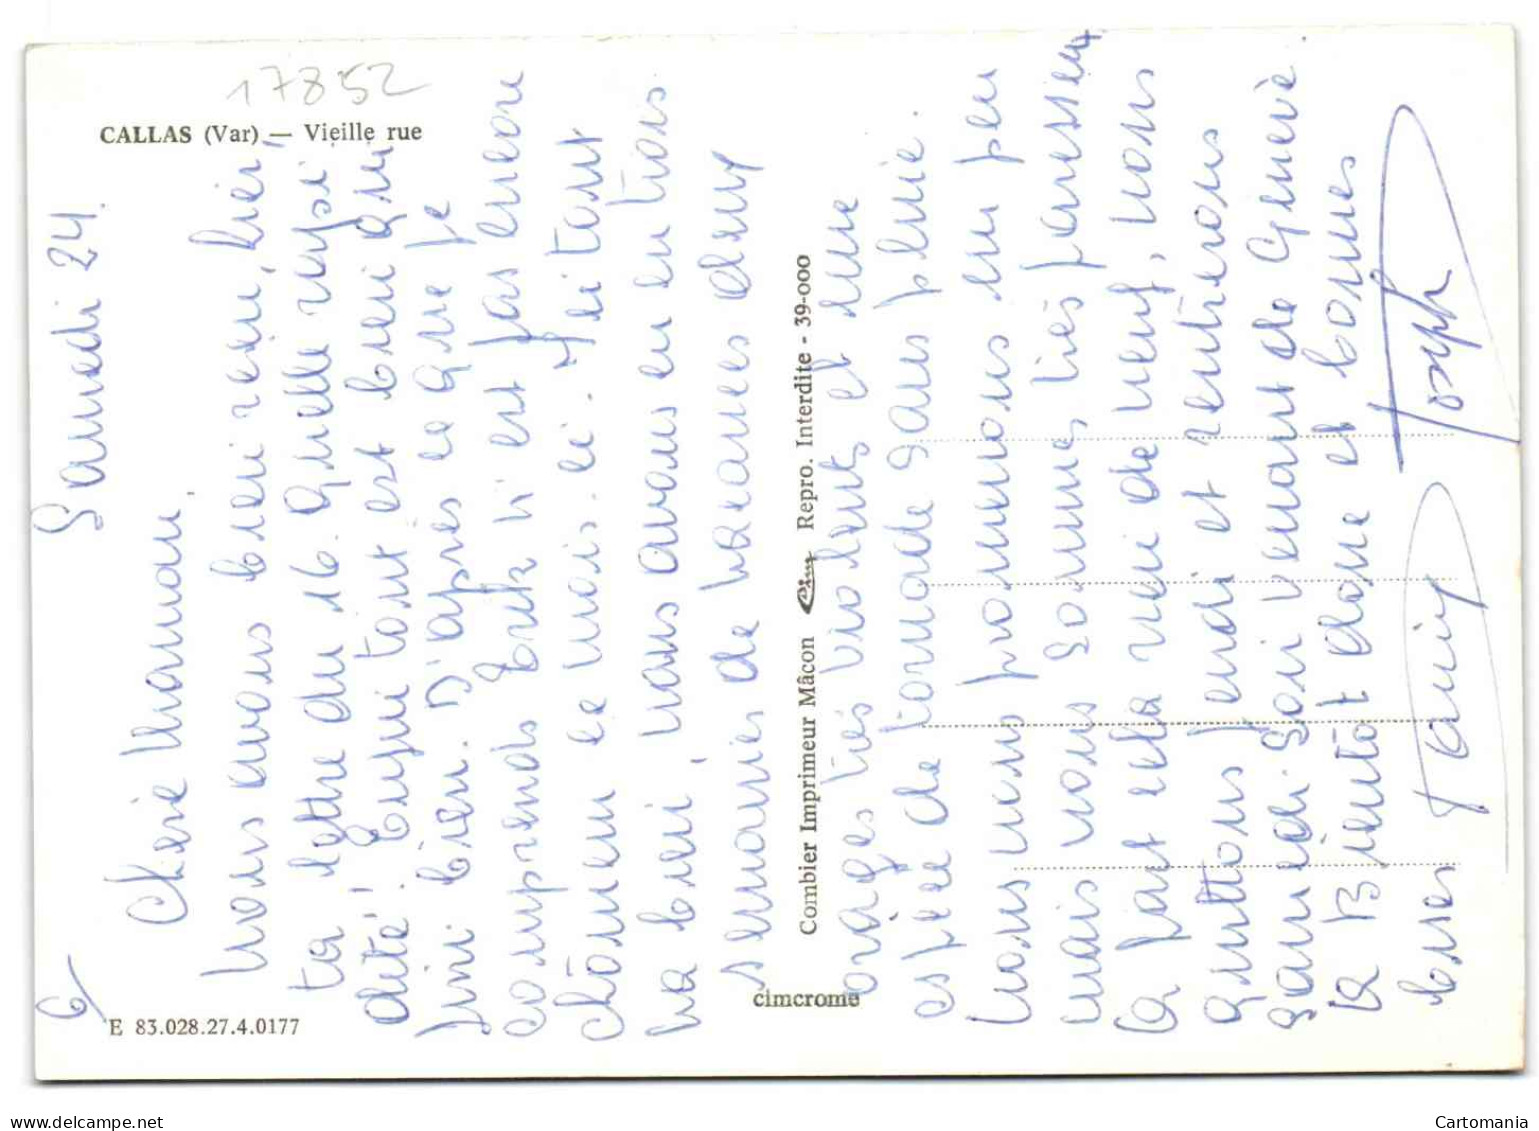 17852
CALLAS (Var) — Vieille rue
6/
Samedi 24.
Chère Maman,
Nous avons bien reçu, hier,
ta lettre du 16. Quelle rapi-
dité! Enfin tout est bien qui
fini bien. D'après ce que je
comprends Erik n'est pas encore
chômeur ce mois-ci. Jeitant
va bien, nous avons eu trois
semaines de vacances
orages très violents et une
espèce de tornade sans pluie.
Nous nous promenons un peu
mais nous sommes très paresseux
La part cela rien de neuf, nous
quittons jeudi et rentrerons
samedi soi venant de Genève.
A Bientôt donc et bonnes
bises
Fanny Joseph
Combier Imprimeur Mâcon Cim Repro. Interdite - 39-000
cimcrome
E 83.028.27.4.0177
Cartomania
delcampe.net